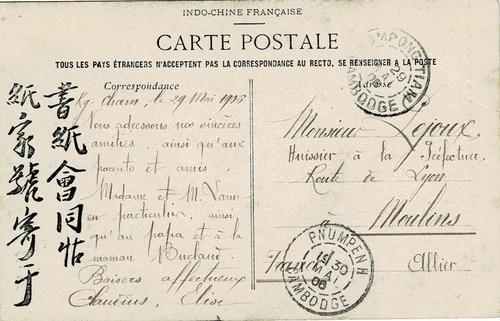 INDO-CHINE FRANÇAISE
CARTE POSTALE
TOUS LES PAYS ÉTRANGERS N'ACCEPTENT PAS LA CORRESPONDANCE AU RECTO, SE RENSEIGNER A LA POSTE
Correspondance
Kg. Cham, le 29 Mai 1906
Nous adressons nos sincères
amitiés, ainsi qu'aux
parents et amis.
Madame et M.
en particulier, ainsi
qu'au papa et à la
maman
Baisers affectueux
Elise
Adresse
Monsieur Lejoux,
Huissier à la Préfecture,
Route de Lyon
à
Moulins
Allier
KOMPONG-THIAM
29
MAI
06
CAMBODGE
PNUMPENH
30
MAI
06
CAMBODGE
書紙會同
紙家號寄于